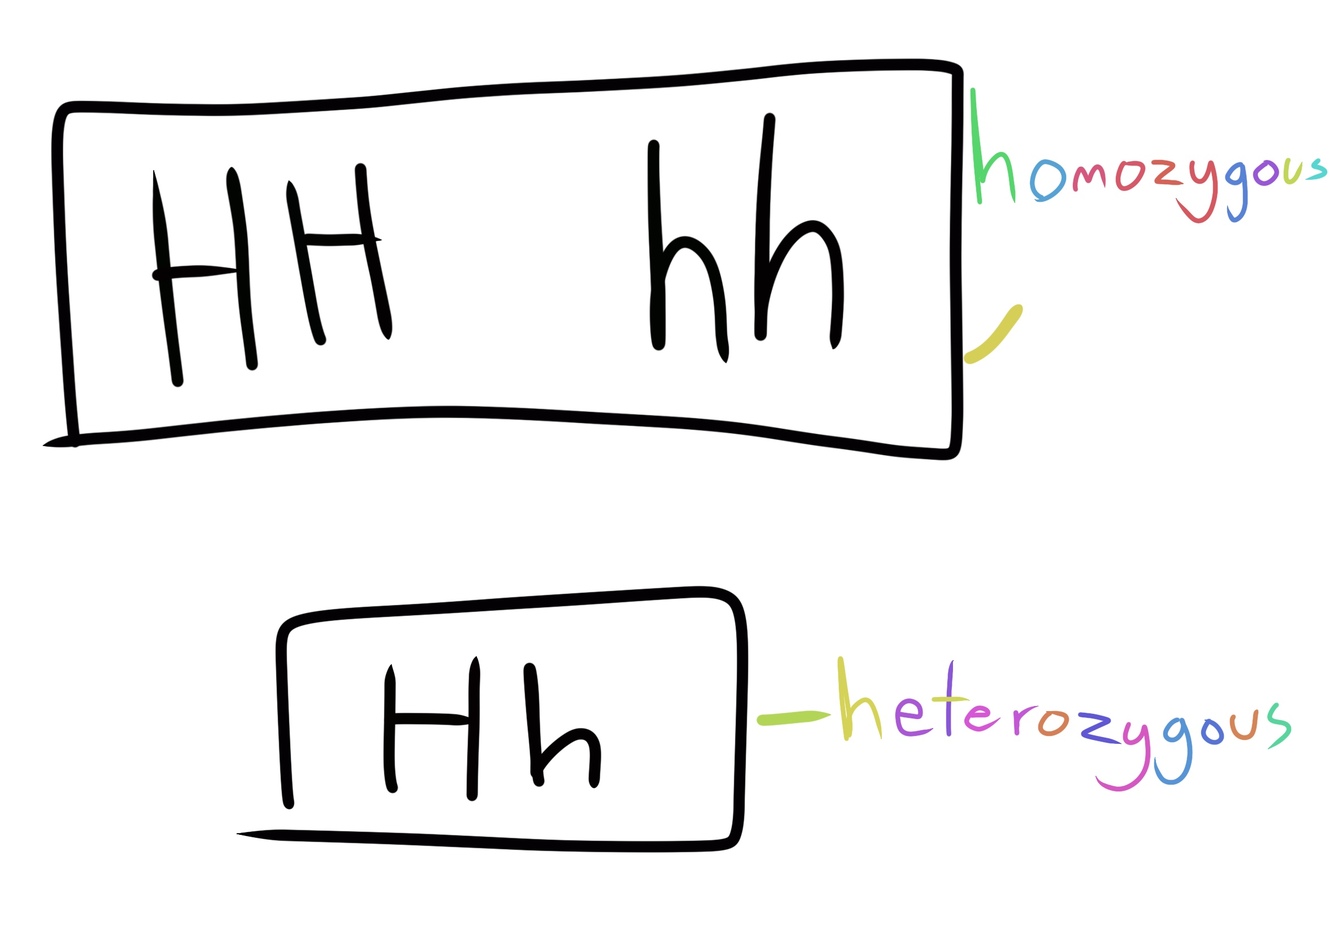 HH hh homozygous
Hh heterozygous